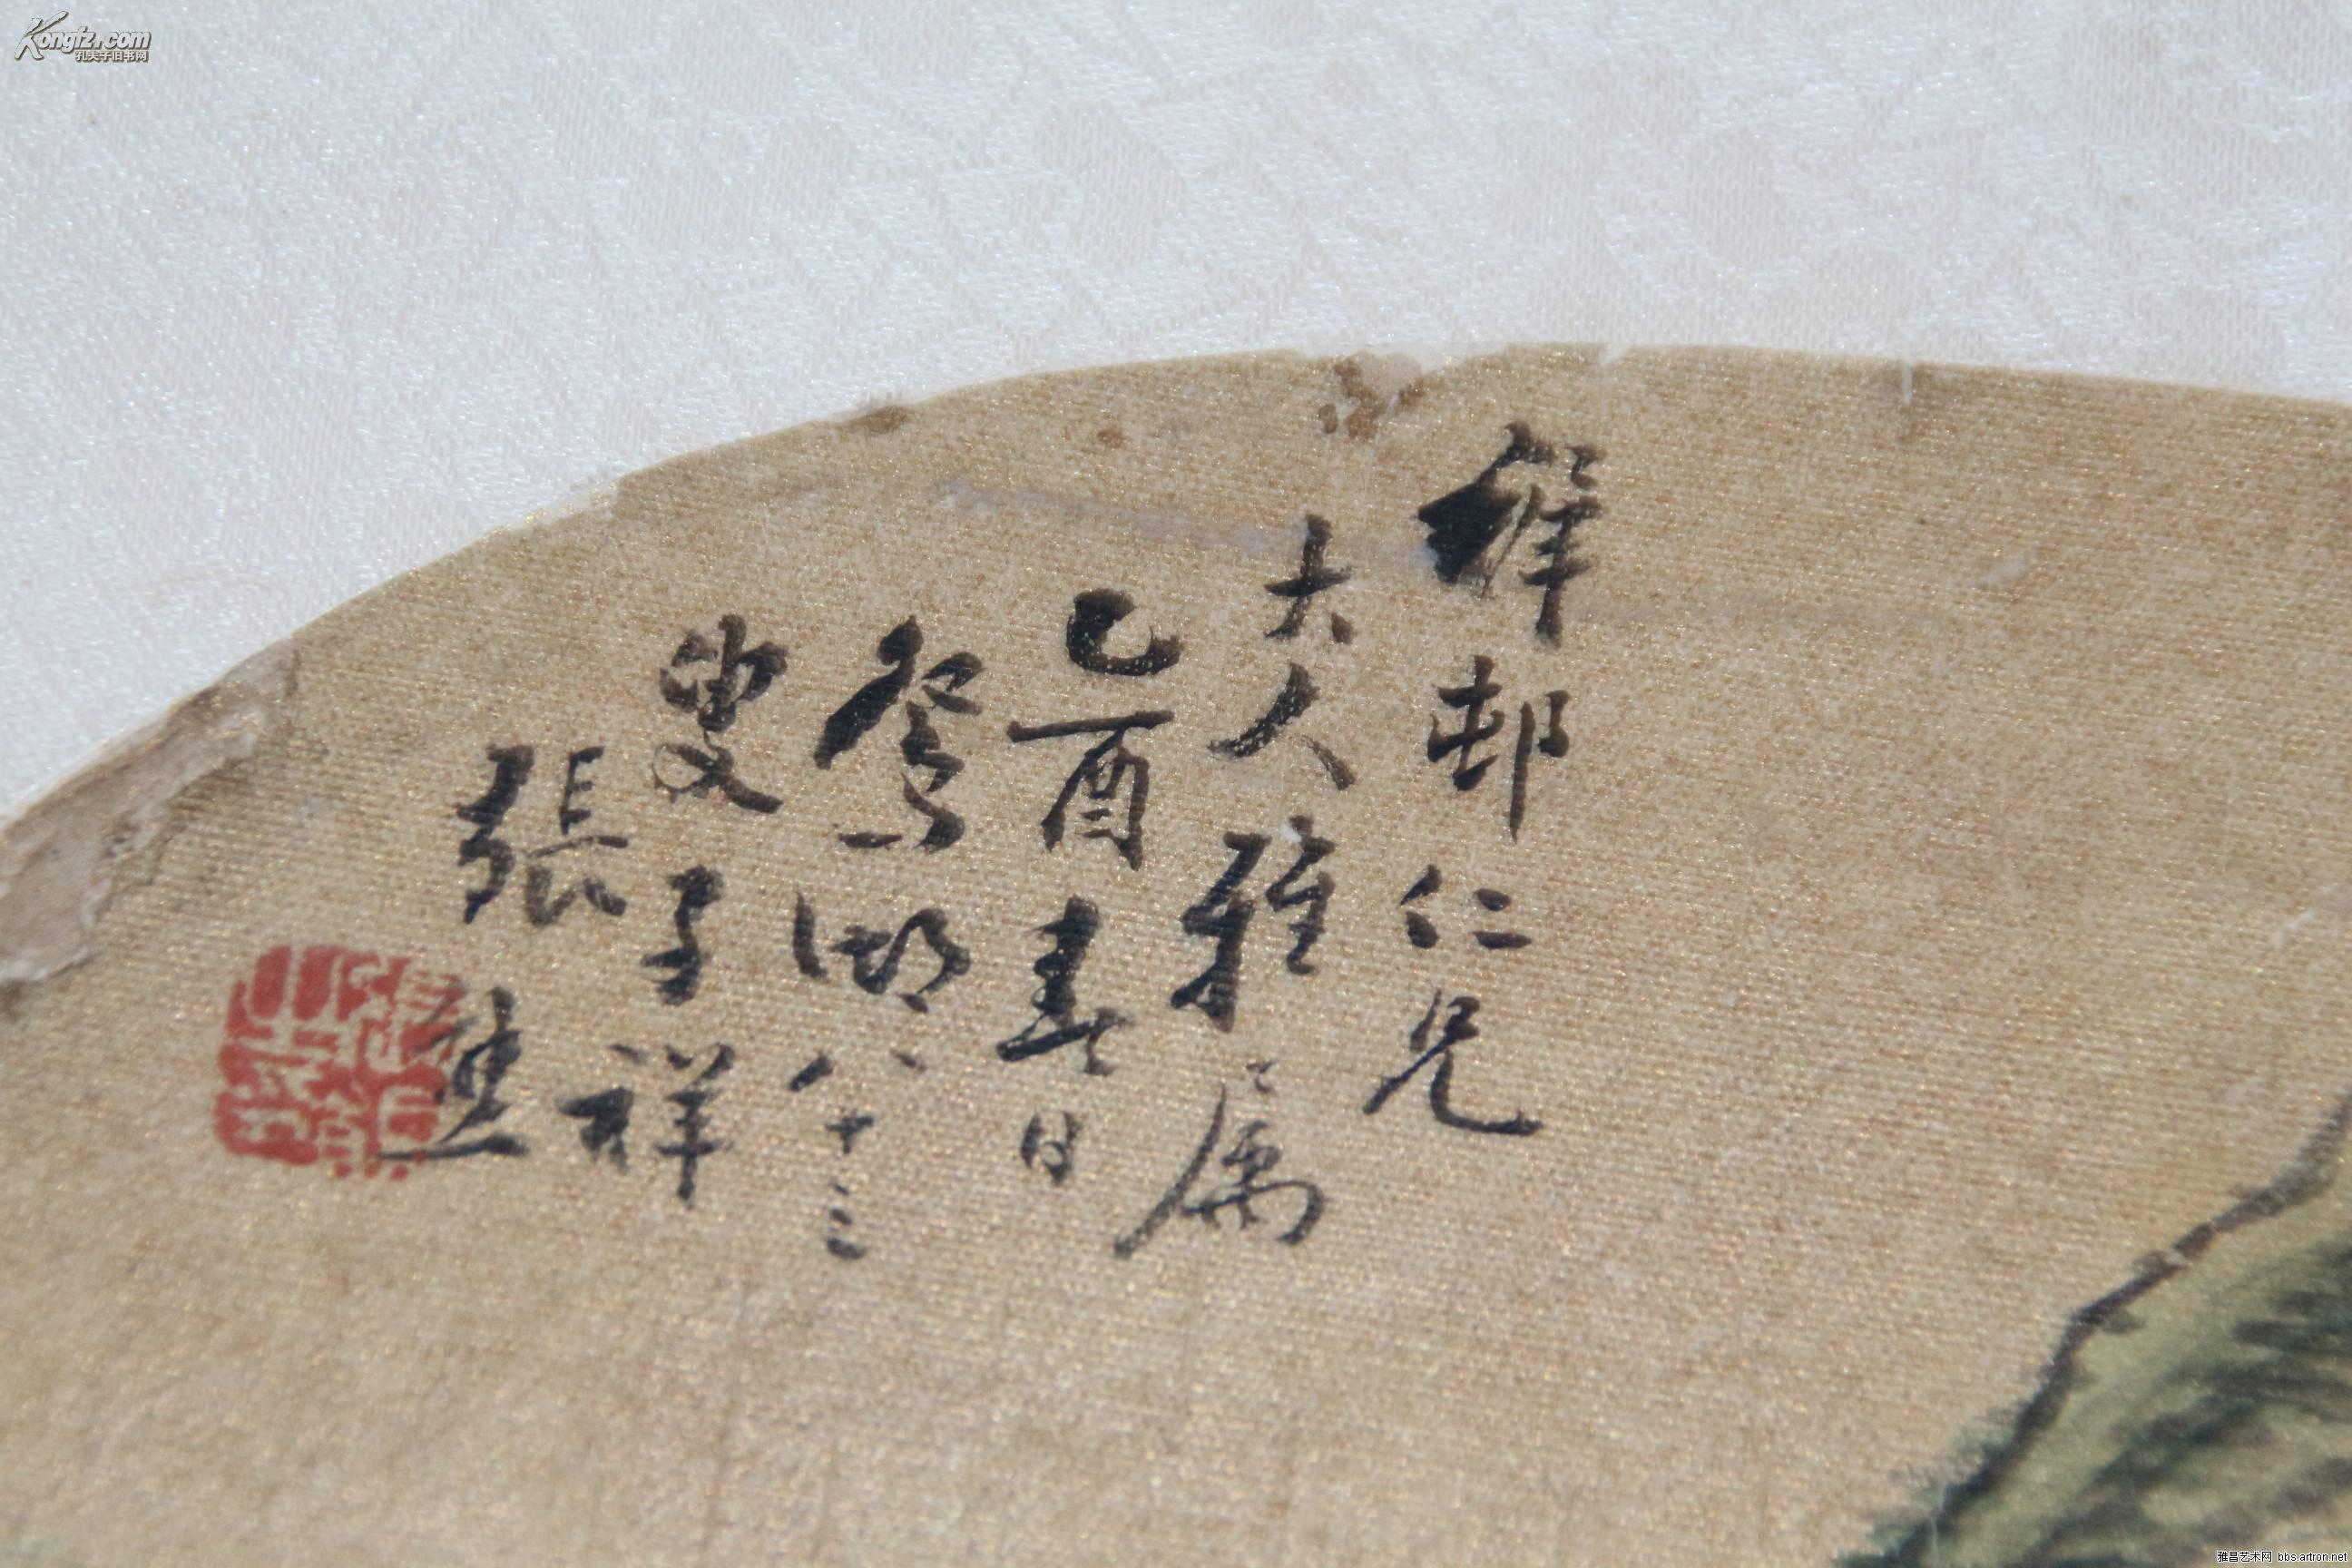 Kongfz.com
孔夫子旧书网
邨仁兄
大人雅属
乙酉春日
鴛湖八十三
叟子祥
張熊
雅昌艺术网 bbs.artron.net